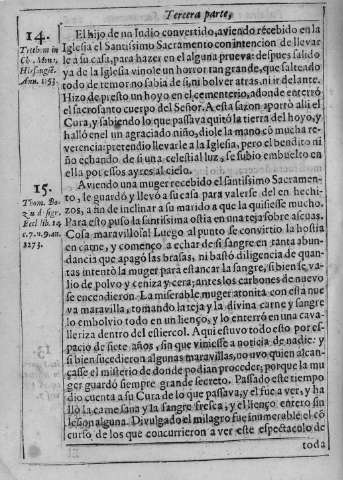 Tercera parte,
14.
Trithm. in
Ch. Mon.
Hirsaugiē.
Ann. 1153.
El hijo de un Iudio convertido, aviendo recebido en la
Iglesia el Santissimo Sacramento con intencion de llevar
le a su casa, para hazer en el alguna prueva: despues salido
ya de la Iglesia vinole un horror tan grande, que salteado
todo de temor no sabia de si, ni bolver atras, ni ir delante.
Hizo de presto un hoyo en el cementerio, adonde enterró
el sacrosanto cuerpo del Señor. A esta sazon aportò alli el
Cura, y sabiendo lo que passava quitò la tierra del hoyo, y
hallò en el un agraciado niño, diole la mano cō mucha re-
verencia: pretendio llevarle a la Iglesia, pero el bendito ni
ño echando de si una celestial luz, se subio embuelto en
ella por essos ayres al cielo.
15.
Thom. Bo-
zio d sign.
Eccl. lib. 14
c. 7. u. 9. an.
1273.
Aviendo una muger recebido el santissimo Sacramen-
to, le guardò y llevò a su casa para valerse del en hechi-
zos, a fin de inclinar a su marido a que la quisiesse mucho.
Para esto puso la santissima ostia en una teja sobre ascuas.
Cosa maravillosa! Luego al punto se convirtio la hostia
en carne, y començo a echar de si sangre en tanta abun-
dancia que apagò las brasas, ni bastò diligencia de quan-
tas intentò la muger para estancar la sangre, si bien se va-
lio de polvo y ceniza y cera; antes los carbones de nuevo
se encendieron. La miserable muger atonita con esta nue
va maravilla, tomando la teja y la divina carne y sangre
lo embolvio todo en un lienço, y lo enterrò en una cava-
lleriza dentro del estiercol. Aqui estuvo todo esto por es-
pacio de siete años, sin que viniesse a noticia de nadie: y
si bien sucedieron algunas maravillas, no uvo quien alcan-
çasse el misterio de donde podian proceder; porque la mu
ger guardò siempre grande secreto. Passado este tiempo
dio cuenta a su Cura de lo que passava, y el fue a ver, y ha
llò la carne sana y la sangre fresca, y el lienço entero sin
lesion alguna. Divulgado el milagro fue innumerable el cō
curso, de los que concurrieron a ver este espectaculo de
toda